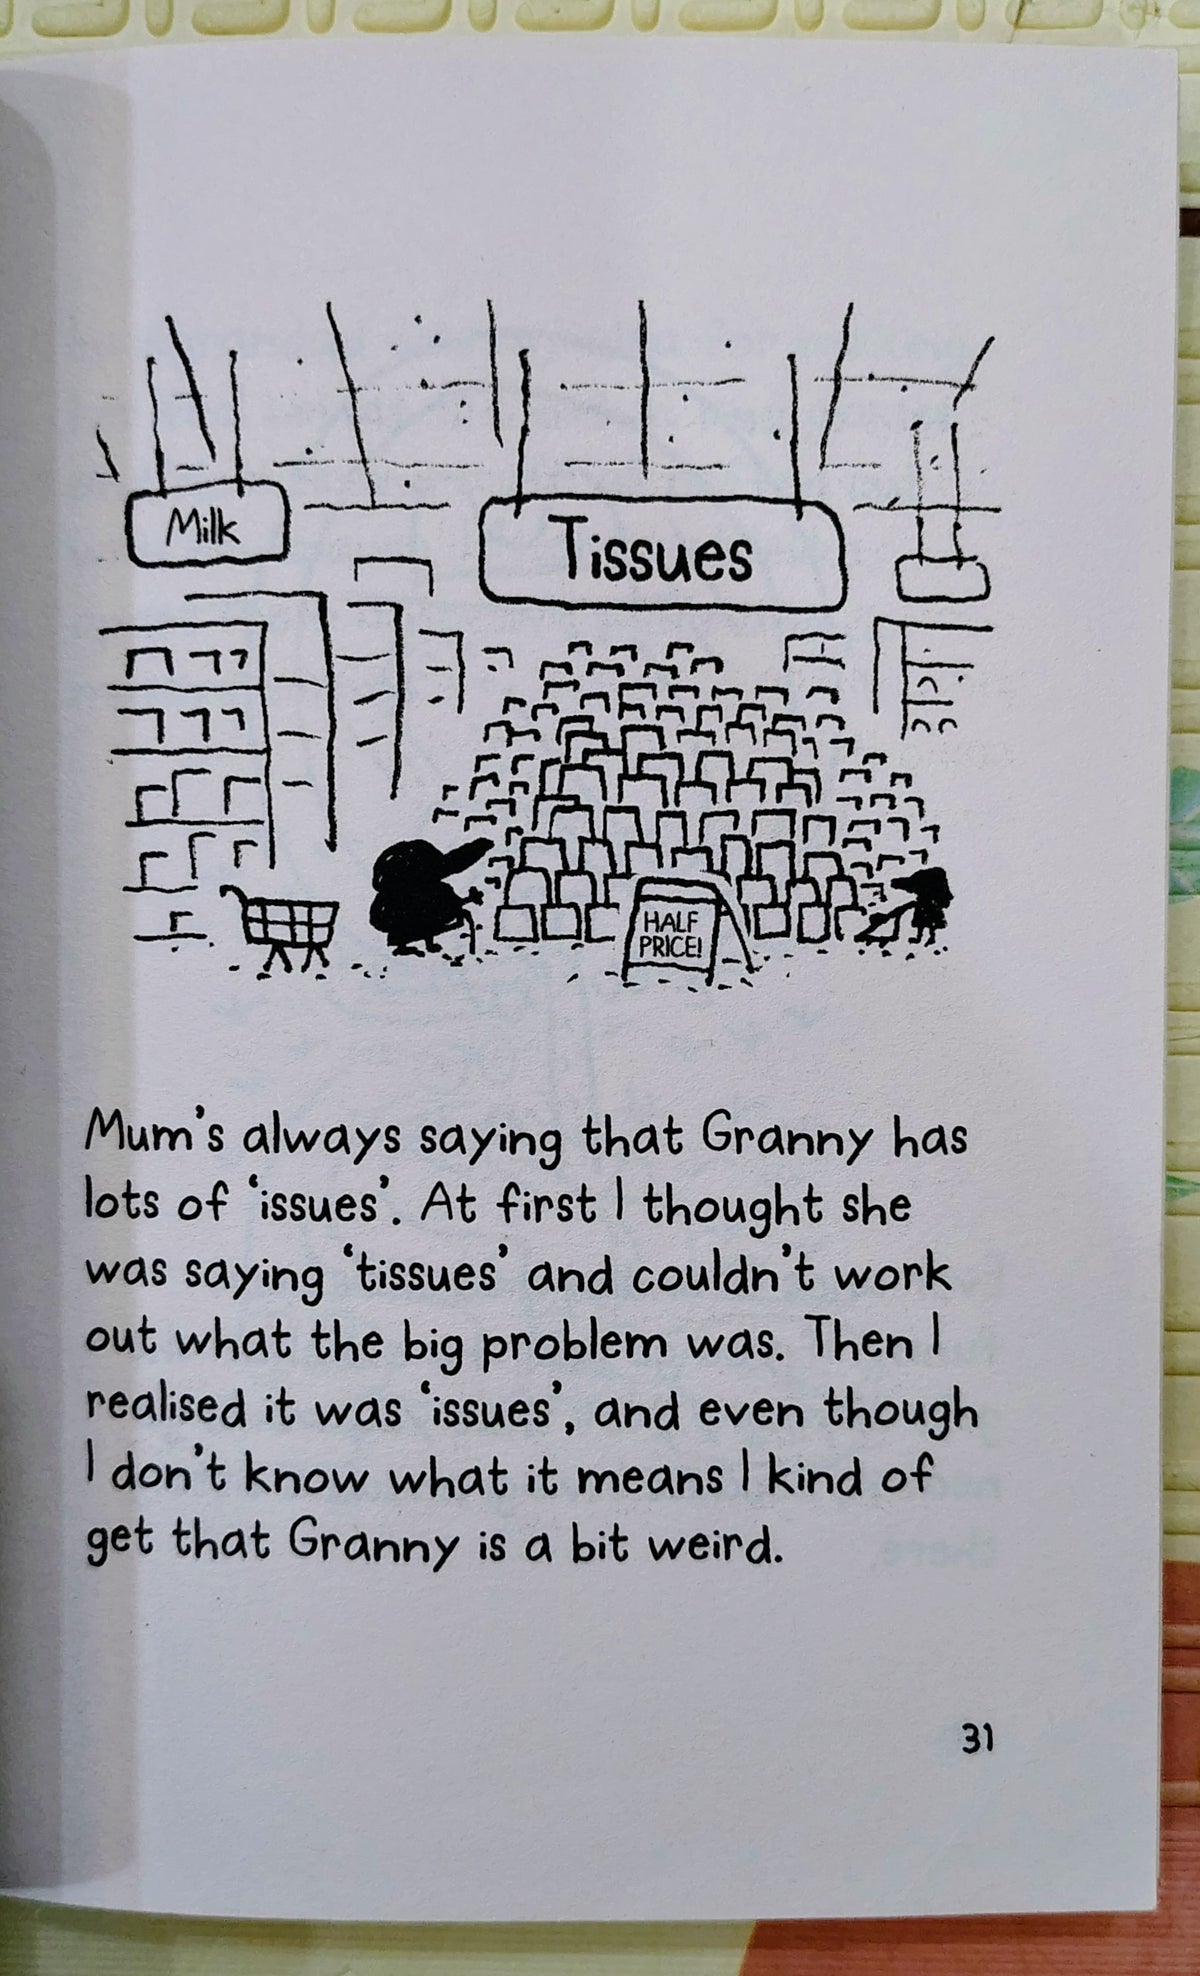 Milk
Tissues
HALF
PRICE!
Mum's always saying that Granny has
lots of 'issues'. At first I thought she
was saying 'tissues' and couldn't work
out what the big problem was. Then I
realised it was 'issues', and even though
I don't know what it means I kind of
get that Granny is a bit weird.
31